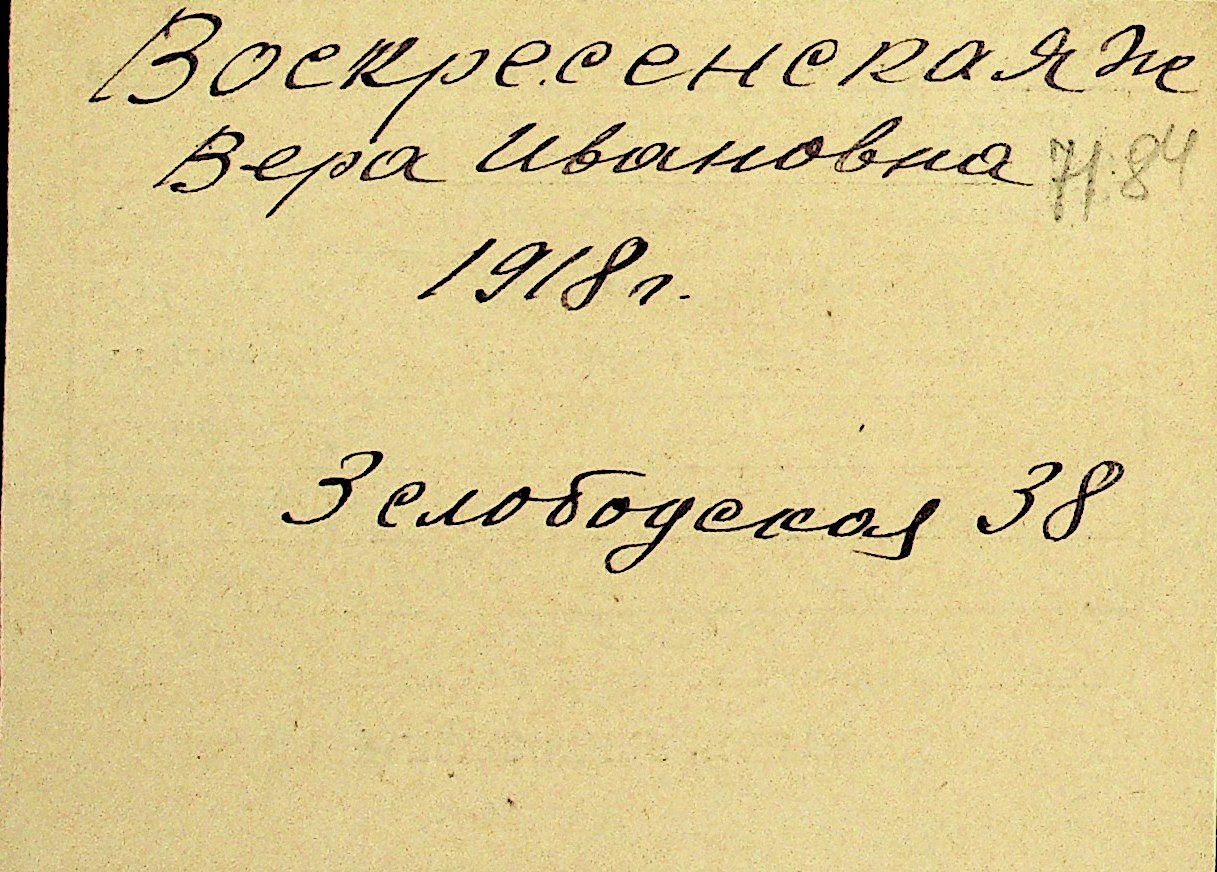 Воскресенская ж
Вера Ивановна
1918 г.
Зслободская 38